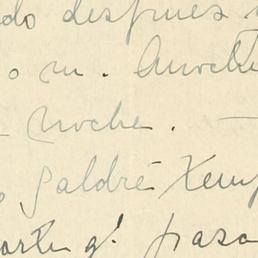 do despues
o m. Anoche
noche. —
Saldré Temp
parte q! pasa